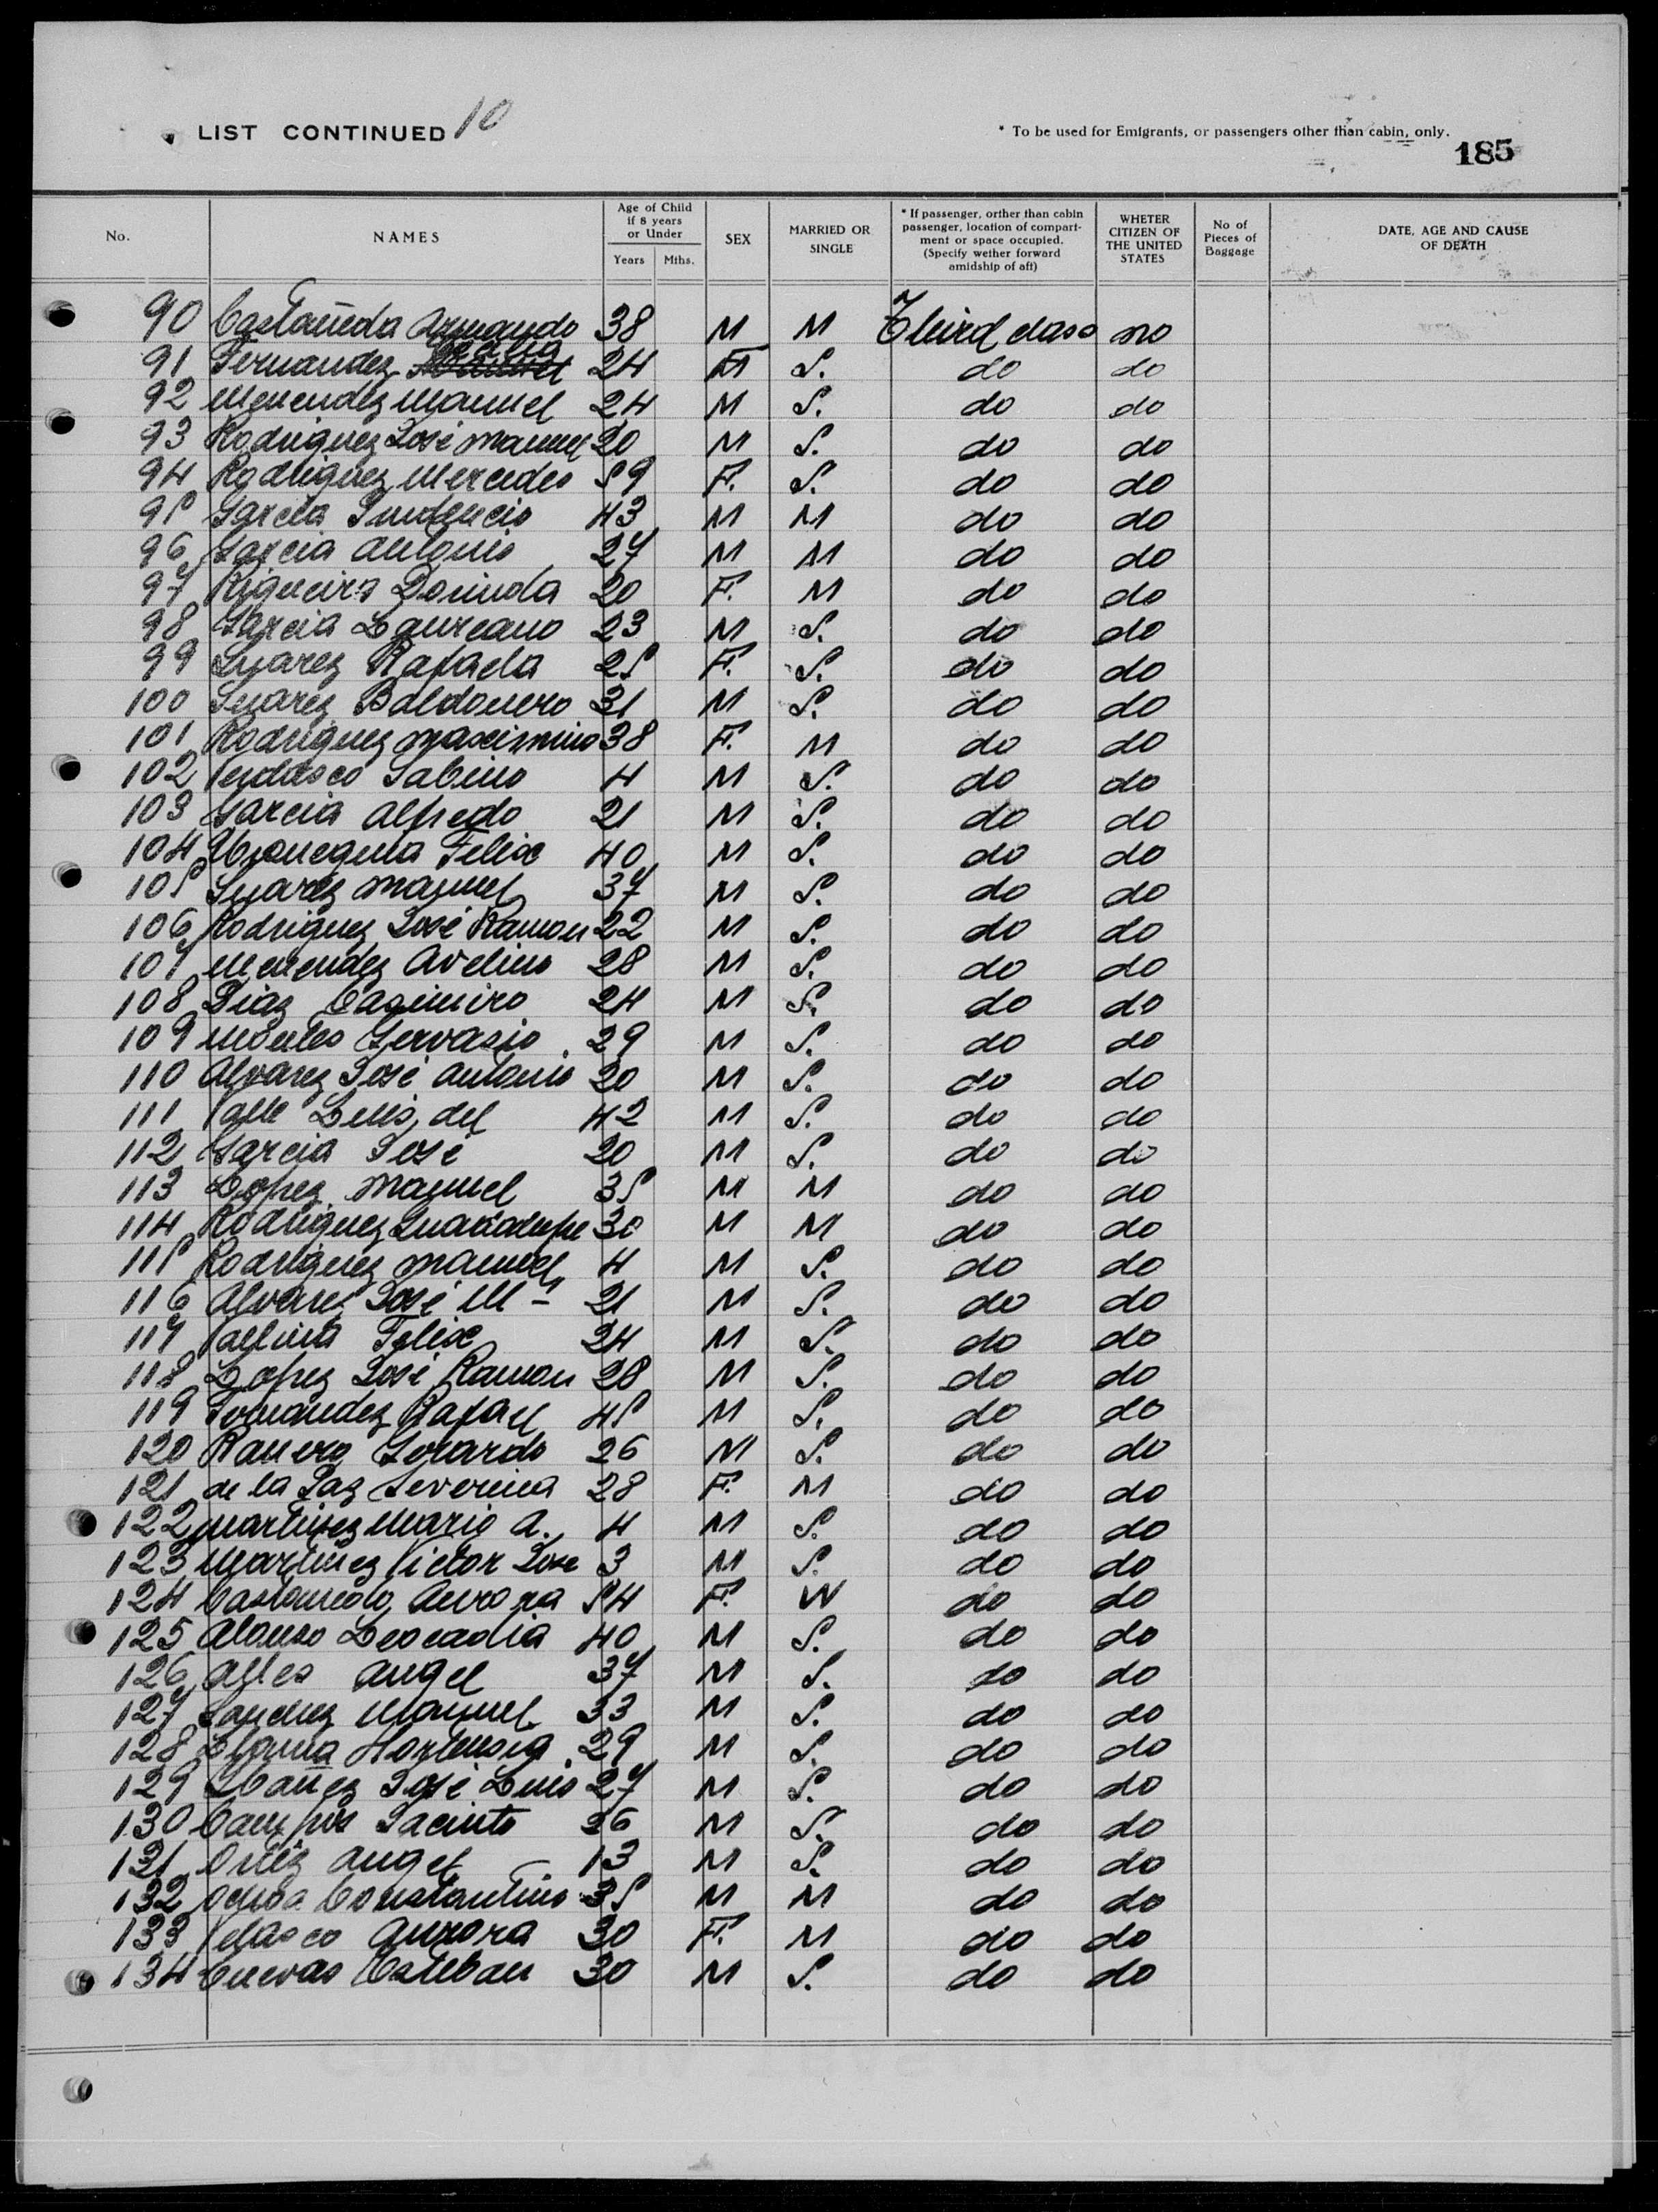 LIST CONTINUED 10
* To be used for Emigrants, or passengers other than cabin, only.
185
No. NAMES Age of Child if 8 years or Under Years Mths. SEX MARRIED OR SINGLE * If passenger, orther than cabin passenger, location of compartment or space occupied. (Specify wether forward amidship of aft) WHETER CITIZEN OF THE UNITED STATES No of Pieces of Baggage DATE, AGE AND CAUSE OF DEATH
90 Castañeda Armando 38 M M Third class no
91 Fernandez 24 F S. do do
92 Menendez Manuel 24 M S. do do
93 Rodriguez José Manuel 20 M S. do do
94 Rodriguez Mercedes 59 F. S. do do
95 Garcia 43 M M do do
96 Garcia Antonio 27 M M do do
97 Rigueira Dorinda 20 F. M do do
98 Garcia Laureano 23 M S. do do
99 Suarez Rafaela 25 F. S. do do
100 Suarez Baldonero 31 M S. do do
101 Rodriguez Maximino 38 F. M do do
102 Sabino 4 M S. do do
103 Garcia Alfredo 21 M S. do do
104 Felix 40 M S. do do
105 Suarez Manuel 37 M S. do do
106 Rodriguez José Ramon 22 M S. do do
107 Menendez Avelino 28 M S. do do
108 Diaz Casimiro 24 M S. do do
109 Montes Gervasio 29 M S. do do
110 Alvarez José Antonio 20 M S. do do
111 Valle Luis, del 42 M S. do do
112 Garcia José 20 M S. do do
113 Lopez Manuel 35 M M do do
114 Rodriguez 30 M M do do
115 Rodriguez Manuel 4 M S. do do
116 Alvarez José Mª 21 M S. do do
117 Felix 24 M S. do do
118 Lopez José Ramon 28 M S. do do
119 Fernandez Rafael 45 M S. do do
120 Ranero Gerardo 26 M S. do do
121 de la Paz Severina 28 F. M do do
122 Martinez Mario A. 4 M S. do do
123 Martinez Victor Jose 3 M S. do do
124 Aurora 54 F. W do do
125 Alonso Leocadia 40 M S. do do
126 Alles Angel 37 M S. do do
127 Sanchez Manuel 33 M S. do do
128 Hortensia 29 M S. do do
129 Ibañez José Luis 27 M S. do do
130 Campos Jacinto 26 M S. do do
131 Ortiz Angel 13 M S. do do
132 Ochoa Constantino 35 M M do do
133 Velasco Aurora 30 F. M do do
134 Cuevas Esteban 30 M S. do do